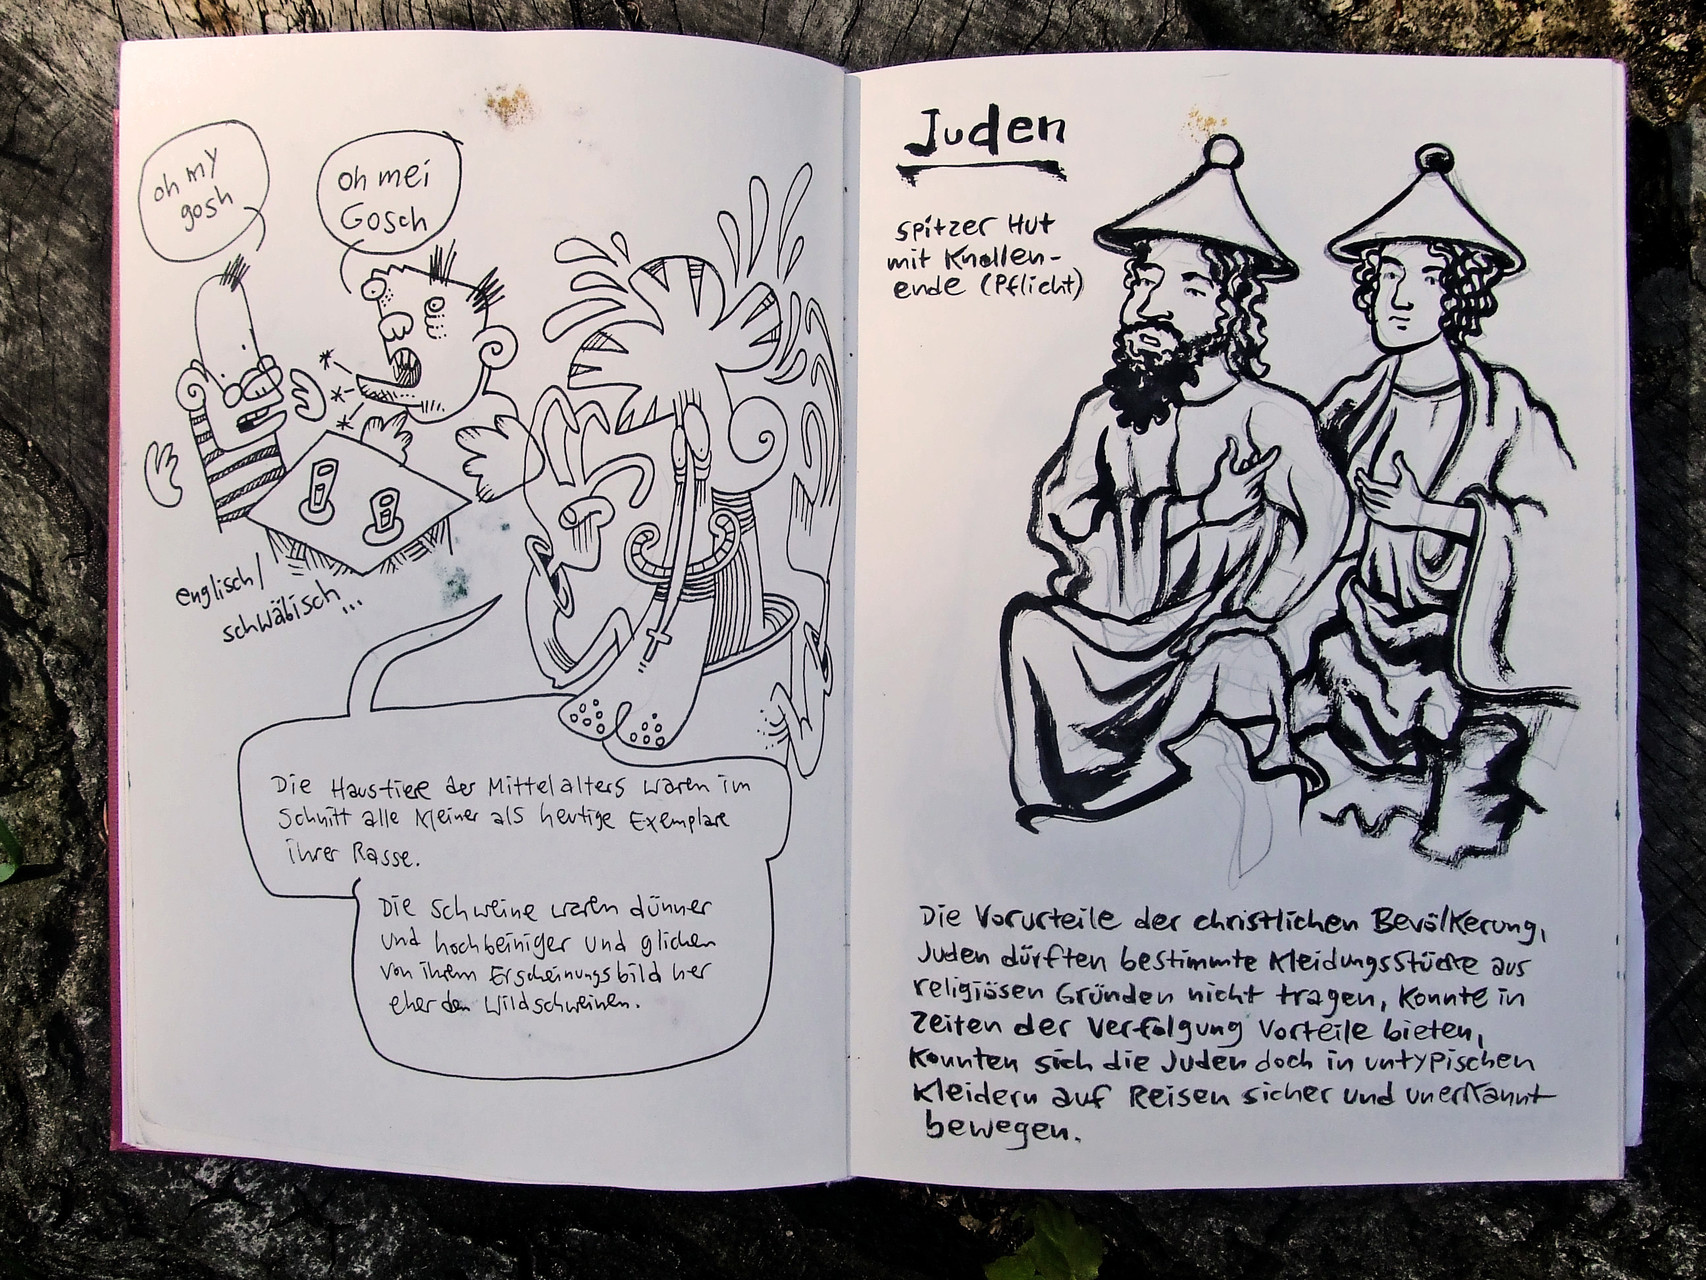 oh my
gosh
oh mei
Gosch
englisch/
schwäbisch...
Die Haustiere der Mittelalters waren im
Schnitt alle kleiner als heutige Exemplare
ihrer Rasse.
Die Schweine waren dünner
und hochbeiniger und glichen
von ihrem Erscheinungsbild her
eher den Wildschweinen.
Juden
spitzer Hut
mit Knollen-
ende (Pflicht)
Die Vorurteile der christlichen Bevölkerung,
Juden dürften bestimmte Kleidungsstücke aus
religiösen Gründen nicht tragen, konnte in
Zeiten der Verfolgung Vorteile bieten,
konnten sich die Juden doch in untypischen
Kleidern auf Reisen sicher und unerkannt
bewegen.